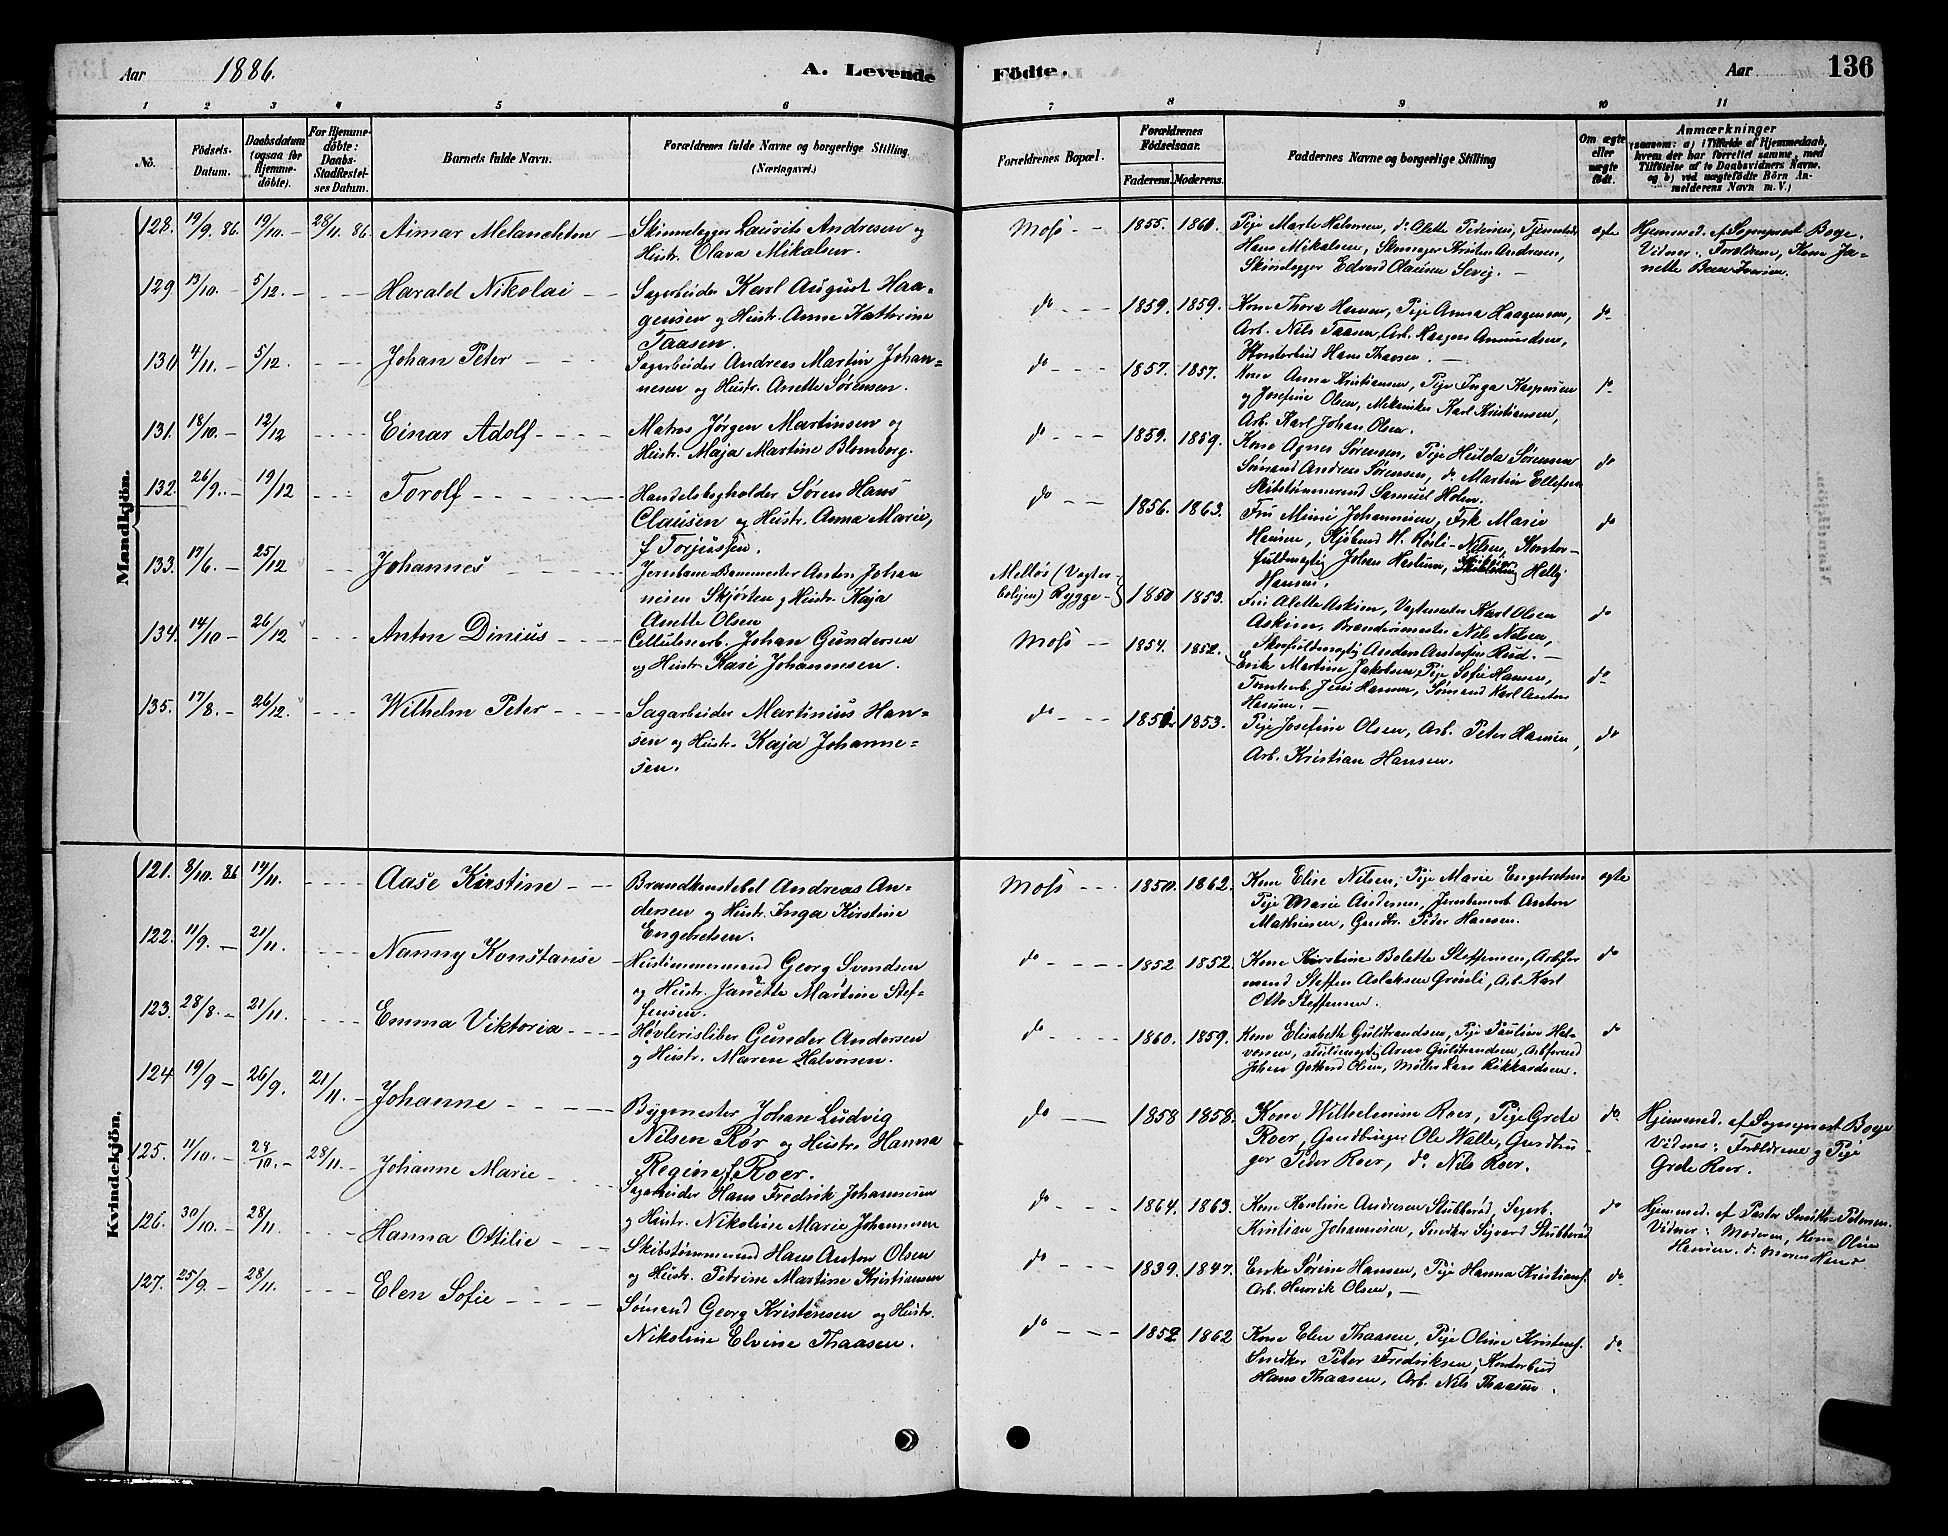 Aar 1886.
A. Levende Födte.
Aar 136
1 2 3 4 5 6 7 8 9 10 11
No.
Födsels-Datum.
Daabsdatum (ogsaa for Hjemme-döbte).
For Hjemme-döbte: Daabs-Stadfæstel-ses Datum.
Barnets fulde Navn.
Forældrenes fulde Navne og borgerlige Stilling (Næringsvei.)
Forældrenes Bopæl.
Forældrenes Födselsaar.
Faderens. Moderens.
Faddernes Navne og borgerlige Stilling
Om ægte eller uægte født.
Anmærkninger
(saasom: a) i Tilfælde af Hjemmedaab,
hvem der har forrettet samme, med
Tilföielse af to Daabsvidners Navne.
og b) ved uægtefödte Börn An-
melderens Navn m. V.)
Mandkjön.
128. 19/9. 86. 19/10. – 28/11. 86. Aimar Melanchton –
Skinnlegger Laurits Andresen og
Hustr. Olava Mikalsen.
Moss – – 1855. 1860.
Pige Marte Halvorsen, do Olette Pedersen,
Hans Mikalsen, Kristen Andresen,
Skinlegger Edvard Olausen –
ægte
Hjemmed. af Sogneprest Boge.
Vidner: Forældrene, Kone Ja-
nette
129. 13/10. – 5/12. – – – – Harald Nikolai – –
Sagarbeider Karl August Haa-
gensen og Hustr. Anne Kathrine
Taasen.
do – – – 1859. 1859.
Kone Thora Hansen, Pige Anna Haagensen,
Arb. Nils Taasen, Arb. Haagen Amundsen,
Kontorbud Hans Thaasen. –
do
130 4/11. – 5/12 – – – Johan Peter – – –
Sagarbeider Andreas Martin Johan-
nesen og Hustr. Anette Sørensen.
do – – – 1857. 1857.
Kone Anna Kristiansen, Pige Inga Kaspersen
og Josefine Olsen, Mekaniker Karl Kristiansen,
Arb. Karl Johan Olsen.
do
131. 18/10. – 12/12 – – – – Einar Adolf – – – –
Matros Jørgen Martinsen og
Hustr. Maja Martine Blomberg.
do – – – 1859. 1859.
Kone Agnes Sørensen, Pige Hulda Sørensen
Sømand Andreas Sørensen, do Martin Ellefsen
Skibstømmermd Samuel Holm.
do
132. 26/9. – 19/12 – – – Torolf – – – – –
Handelsbogholder Søren Hans
Clausen og Hustr. Anna Marie,
f Torjussen.
do – – 1856. 1863.
Fru Mimi Johannesen, Frk Marie
Hansen, Kjøbmd H. Røsli-Nilsen, Kontor-
fuldmægtig Johan Helly
Hansen.
do
133. 17/6. – 25/12 – – – Johannes – – – –
Jernbane-Banemester Anton Johan
nesen Skjørten og Hustr. Kaja
Anette Olsen
Melløs (Vogter-
boligen) Rygge – 1850 1853.
Fru Alette Askim, Vogtmester Karl Olsen
Askim, Nils Nilsen,
Anders Andersen Rud. –
do
134. 14/10 – 26/12 – – – Anton Dinius – – –
Cellulosearb. Johan Gundersen
og Hustr. Kari Johannesen.
Moss – – 1854. 1852.
Enke Martine Jakobsen, Pige Sofie Hansen,
Tomtearb. Jens Hansen, Sømand Karl Anton
Hansen. –
do
135. 17/8. – 26/12. – – – Wilhelm Peter – – –
Sagarbeider Martinius Han-
sen og Hustr. Kaja Johanne-
sen.
do – – – 1853.
Pige Josefine Olsen, Arb. Peter Hansen,
Arb. Kristian Hansen.
do
Kvindekjön.
121. 8/10. 86 14/11. – – – – Aase Kirstine – –
Brandkonstabel Andreas An-
dersen og Hustr. Inga Kirstine
Engebretsen.
Moss – – – 1850. 1862.
Kone Elise Nilsen, Pige Marie Engebretsen
Pige Marie Andersen, Jernbanearb Anton
Mathisen, Gaardbr. Peder Hansen.
ægte
122. 11/9. – 21/11. – – – Nanny Konstanse –
Hustømmermand Georg Svendsen
og Hustr. Janette Martine Stef-
fensen.
do – – – – 1852 1852.
Kone Kirstine Bolette Steffensen, Arbfor
mand Steffen Aslaksen Grønli, Arb. Karl
Otto Steffensen.
do
123. 28/8. – 21/11. – – – – Emma Viktoria – – –
Høvlerisliber Gunder Andersen
og Hustr. Maren Halvorsen.
do – – – – 1860. 1859.
Kone Elisabeth Guldbrandsen, Pige Pauline Hal-
vorsen, fuldmægtig Arne Guldbrandsen, Arbformd
Johan Gothard Olsen, Møller Lars Rikkardsen.
do
124 19/9 – 26/9. 21/11. – Johanne – – – –
Bygmester Johan Ludvig
Nilsen Rør og Hustr. Hanna
Regine f Roer.
do – – – 1858 1858.
Kone Wilhelmine Roer, Pige Grete
Roer, Gaardbruger Ole Walle, Gaardbru
ger Peder Roer, do Nils Roer.
do
Hjemmed. af Sogneprest Boge
Vidner: Forældrene og Pige
Grete Roer.
125. 11/10. – 24/10. – 28/11. – Johanne Marie – – –
Sagarbeider Hans Fredrik Johannesen
og Hustr. Nikoline Marie Johannesen
do – – – 1864. 1863.
Kone Karoline Andresen Stubberød, Sagarb.
Kristian Johannesen, Snedker Sigvard Stubberød
do
Hjemmed. af Pastor Smith-Petersen.
Vidner: Moderen, Kone Oline
Hansen, do Maren Hans
126. 30/10. – 28/11. – – – Hanna Ottilie – – –
Skibstømmermd Hans Anton Olsen
og Hustr. Petrine Martine Kristiansen
do – – – 1839. 1847.
Enke Sørine Hansen, Pige Hanna Kristians.
Arb. Henrik Olsen, –
do
127. 25/9 – 28/11. – – – Elen Sofie – – – –
Sømand Georg Kristensen og Hustr.
Nikoline Elvine Thaasen.
do – – – 1852 1862
Kone Elen Thaasen, Pige Oline Kristens.
Snedker Peter Fredriksen, Kontorbud
Hans Thaasen, Arb. Nils Thaasen.
do